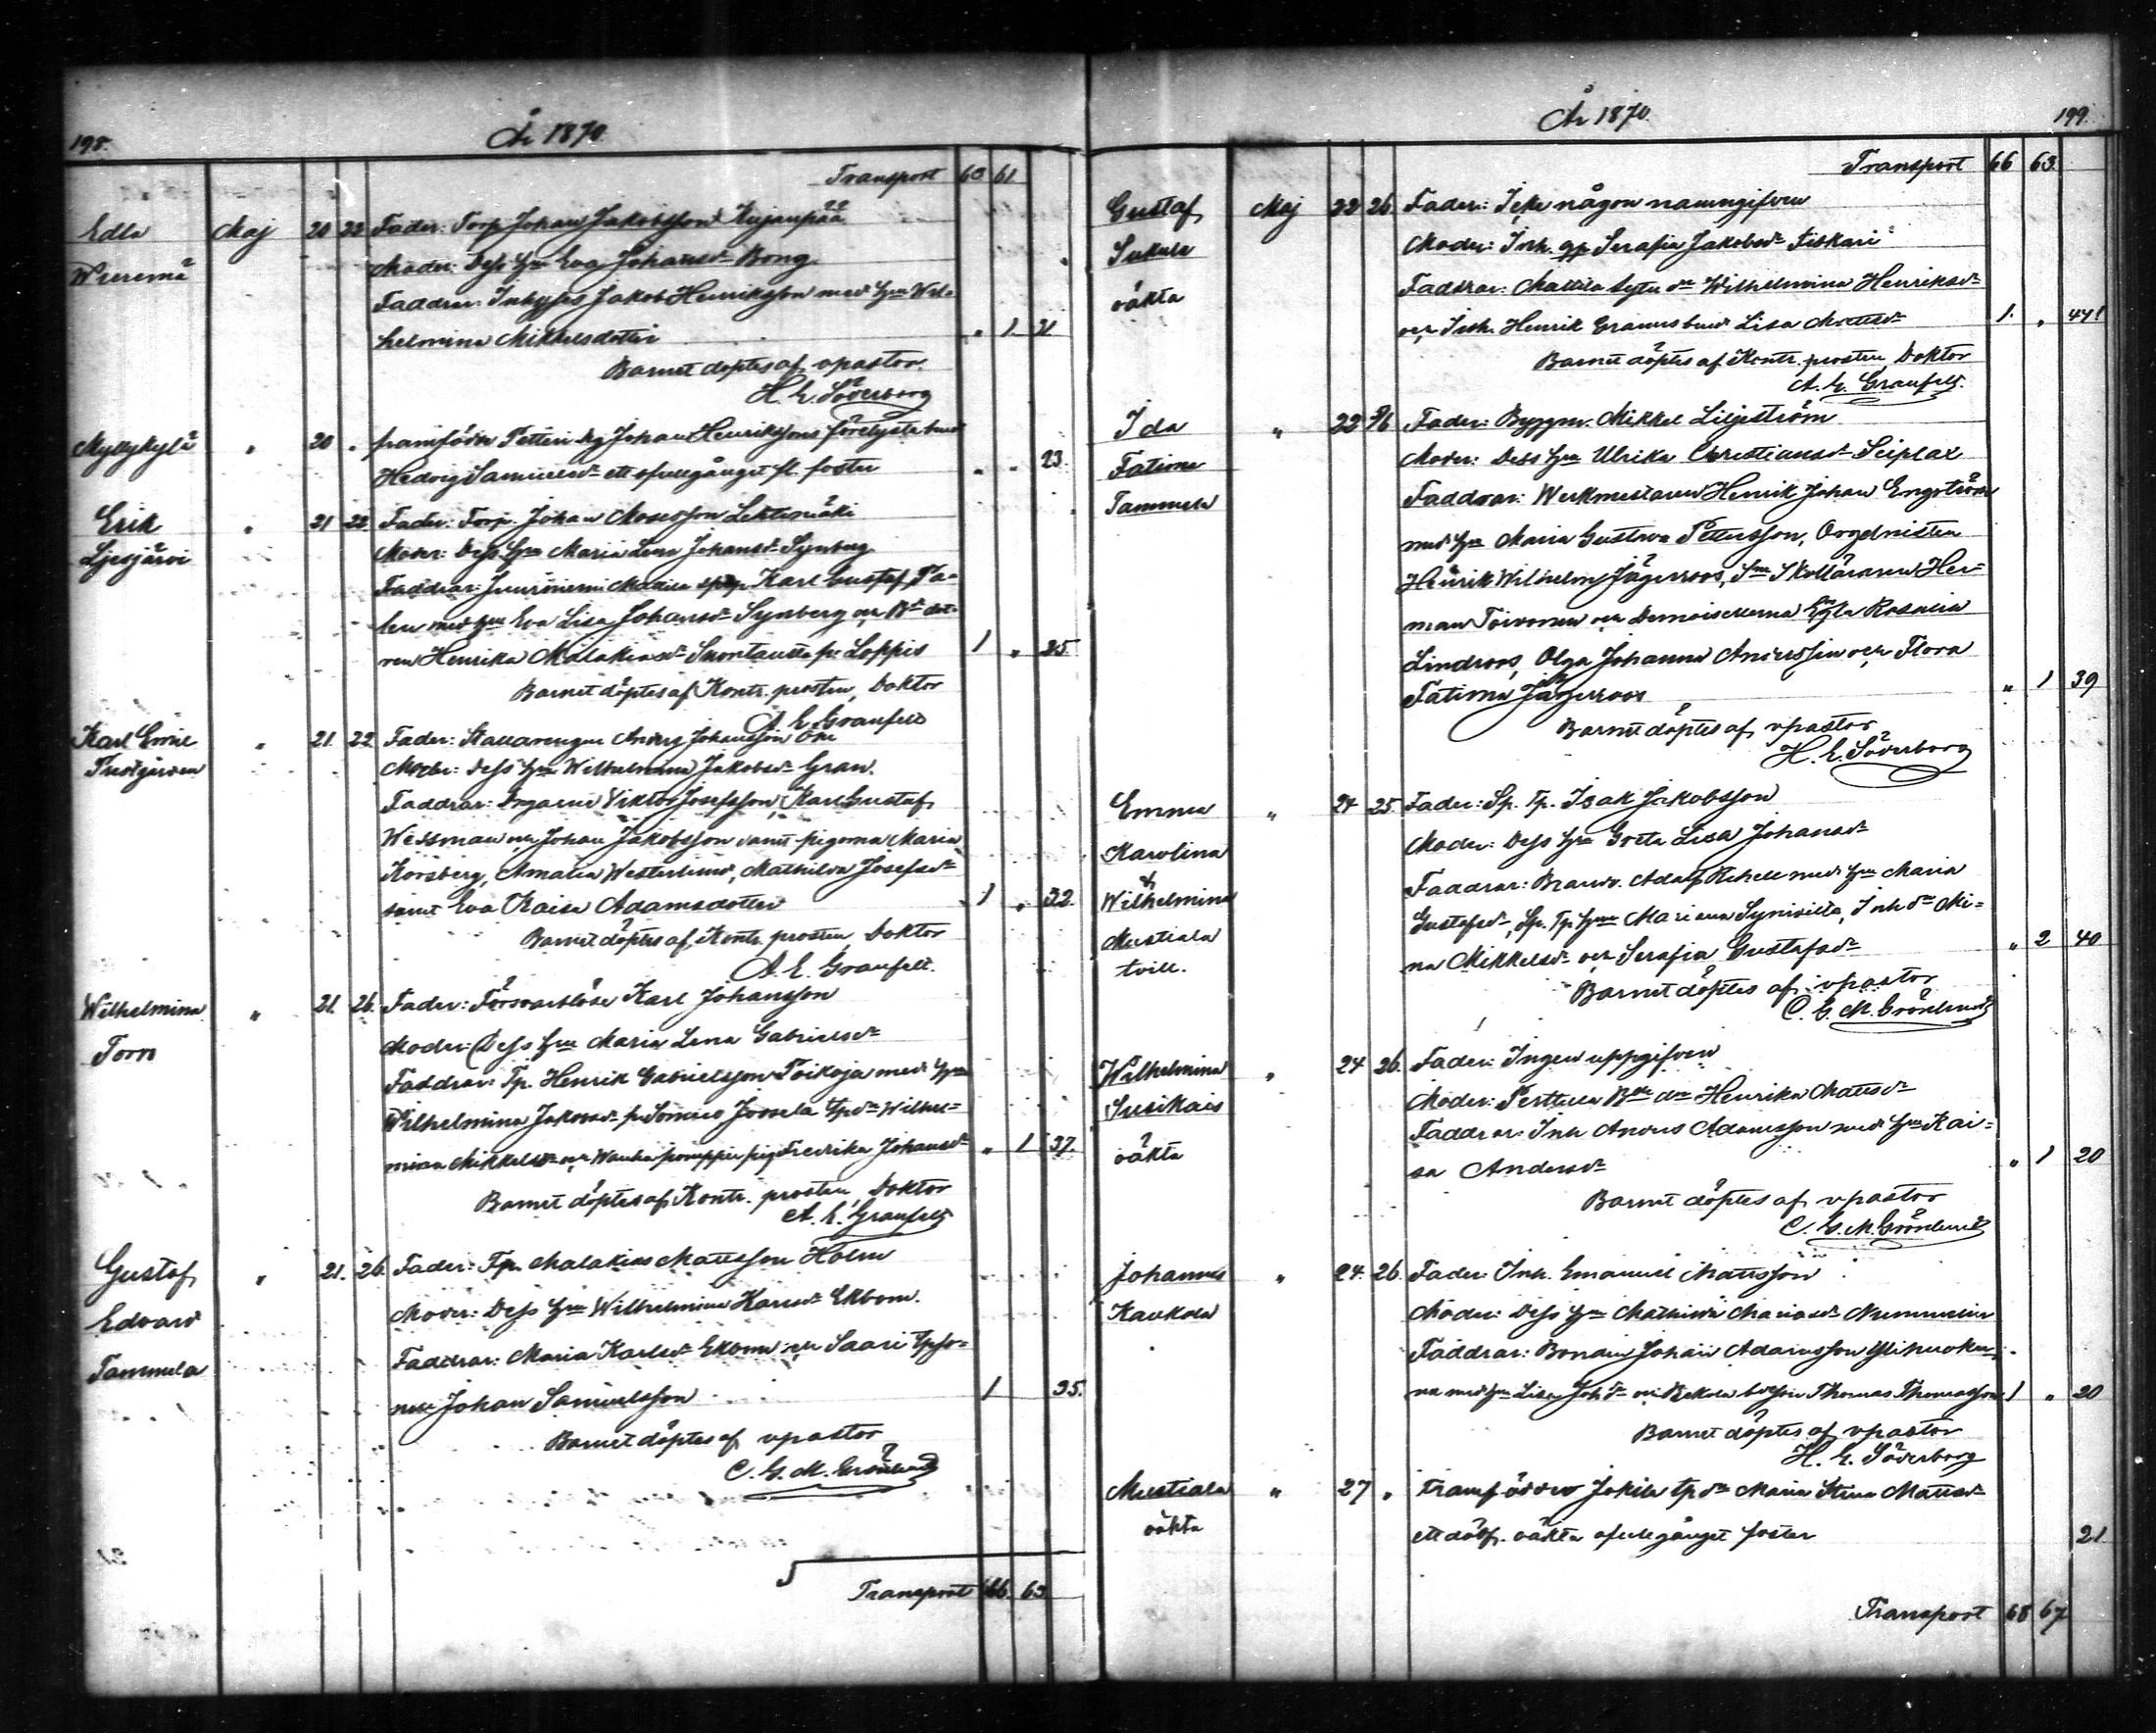 198.
År 1870.
Transport 63 61
Edla Maj 20 22 Fader: Torp. Johan Jakobsson Kujanpää
Moder: Dess hu Eva Johansdr Bong
Faddrar: Inhyses Jakob Henriksson med hu Wil-
helmina Mikkelsdotter " 1 21
Barnet döptes af vpastor
H. E. Söderborg
Myllykylä " 20 " framfödde Petteri drg Johan Henrikssons
Hedvig Samuelsdr ett ofullgånget fl. foster " " 23.
Erik " 21 22 Fader: Torp. Johan Mosesson Lehtimäki
Ljesjärvi
Moder: Dess hu Maria Lena Johansdr Synberg
Faddrar: Karl Gustaf
med hu Eva Lisa Johansdr Synberg och
Henrika Malakiasdr Loppis 1 " 25
Barnet döptes af Kontr. prosten, Doktor
A. E. Granfelt
Karl Emil " 21. 22 Fader: Anders Johansson
Prestgården
Moder: Dess hu Wilhelmina Jakobsdr Gran.
Faddrar: Drgarne Viktor Josefsson, Karl Gustaf
Wessman och Johan Jakobsson samt pigorna Maria
Korsberg, Amalia Westerlund, Mathilda Josefsdr
samt Eva Kaisa Adamsdotter 1 " 32.
Barnet döptes af Kontr. prosten, Doktor
A. E. Granfelt.
Wilhelmina " 21. 26. Fader: Försvarslöse Karl Johansson
Torro
Moder: Dess hu Maria Lena Gabrielsdr
Faddrar: Tp. Henrik Gabrielsson Toikoja med hu
Wilhelmina Jakobsdr fr. Somero Joosela tpdr Wilhel-
mina Mikkelsdr och pig Fredrika Johansdr " 1 37.
Barnet döptes af Kontr. prosten, Doktor
A. E. Granfelt
Gustaf " 21. 26. Fader: Tp. Malakias Mattsson Holm
Edvard
Moder: Dess hu Wilhelmina Karlsdr Ekbom.
Tammela
Faddrar: Maria Karlsdr Ekbom och Saari tpso-
nen Johan Samuelsson 1 35.
Barnet döptes af vpastor
C. G. M. Grönlund
Transport 66. 63
År 1870. 199.
Transport 66 63
Gustaf Maj 22 26. Fader: Icke någon namngifven
Sukula
Moder: Inh. gp Serafia Jakobsdr Fiskari
oäkta
Faddrar: Mattila dr Wilhelmina Henriksdr
och Inh. Henrik Lisa Mattsdr 1. " 44!
Barnet döptes af Kontr. prosten, Doktor
A. E. Granfelt.
Ida " 22 26 Fader: Byggm. Mikkel Liljeström
Fatima
Moder: Dess hu Ulrika Christiansdr Seiplax
Tammela
Faddrar: Werkmestaren Henrik Johan Engström
med hu Maria Gustava Pettersson, Orgelnisten
Henrik Wilhelm Jägerroos, Skolläraren Her-
man Toivonen och Demoisellerna Rosalia
Lindroos, Olga Johanna Andersin och Flora
Fatima Jägerroos " 1 39
Barnet döptes af vpastor
H. E. Söderborg
Emma " 24 25 Fader: Sp. Tp. Isak Jakobsson
Karolina
Moder: Dess hu Greta Lisa Johansdr
&
Wilhelmina
Faddrar: Adolf med hu Maria
Mustiala
Gustafsdr, Sp. Tp. hu Mariana Synivieta, Inh dr Mi-
tvill.
na Mikkelsdr och Serafia Gustafsdr " 2 40
Barnet döptes af vpastor
C. G. M. Grönlund
Wilhelmina " 24 26. Fader: Ingen uppgifven
Susikais
Moder: Perttula dr Henrika Mattsdr
oäkta
Faddrar: Inh Anders Adamsson med hu Kai-
sa Andersdr " 1 20
Barnet döptes af vpastor
C. G. M. Grönlund
Johannes " 24. 26. Fader: Inh. Emanuel Mattsson
Kaukola
Moder: Dess hu Mathilda Mariasdr Nummelin
Faddrar: Bonden Johan Adamsson
med hu Lisa Joh dr och Thomas Thomasson 1 " 20
Barnet döptes af vpastor
H. E. Söderborg
Mustiala " 27 " Framfödde Jokila tpdr Maria Stina Mattsdr
oäkta
ett dödf. oäkta ofullgånget foster 21.
Transport 68 67